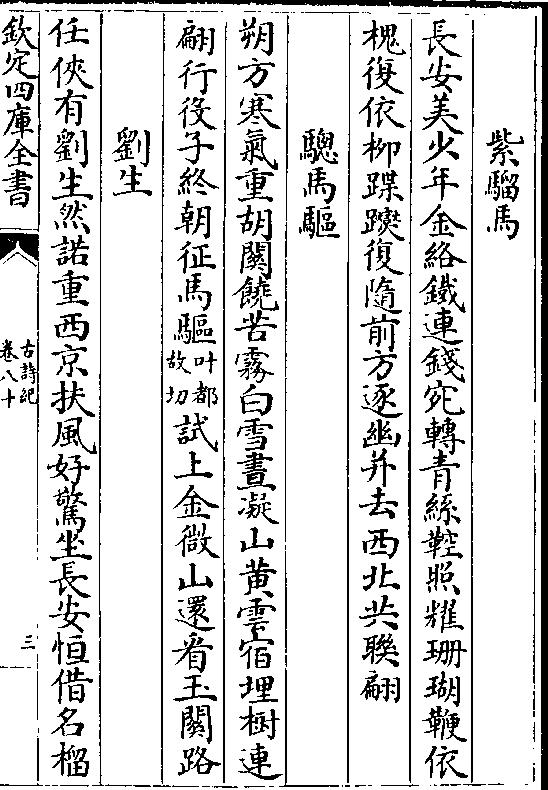 紫騮馬
長安美少年金絡鐵連錢宛轉青絲鞚照耀珊瑚鞭依
槐復依柳躞蹀復隨前方逐幽并去西北共聯翩
驄馬驅
朔方寒氣重胡關饒苦霧白雪晝凝山黄雲宿埋樹連
翩行役子終朝征馬驅叶都故切試上金微山還看玉關路
劉生
任俠有劉生然諾重西京扶風好驚坐長安恒借名榴
欽定四庫全書
古詩紀
卷八十
三